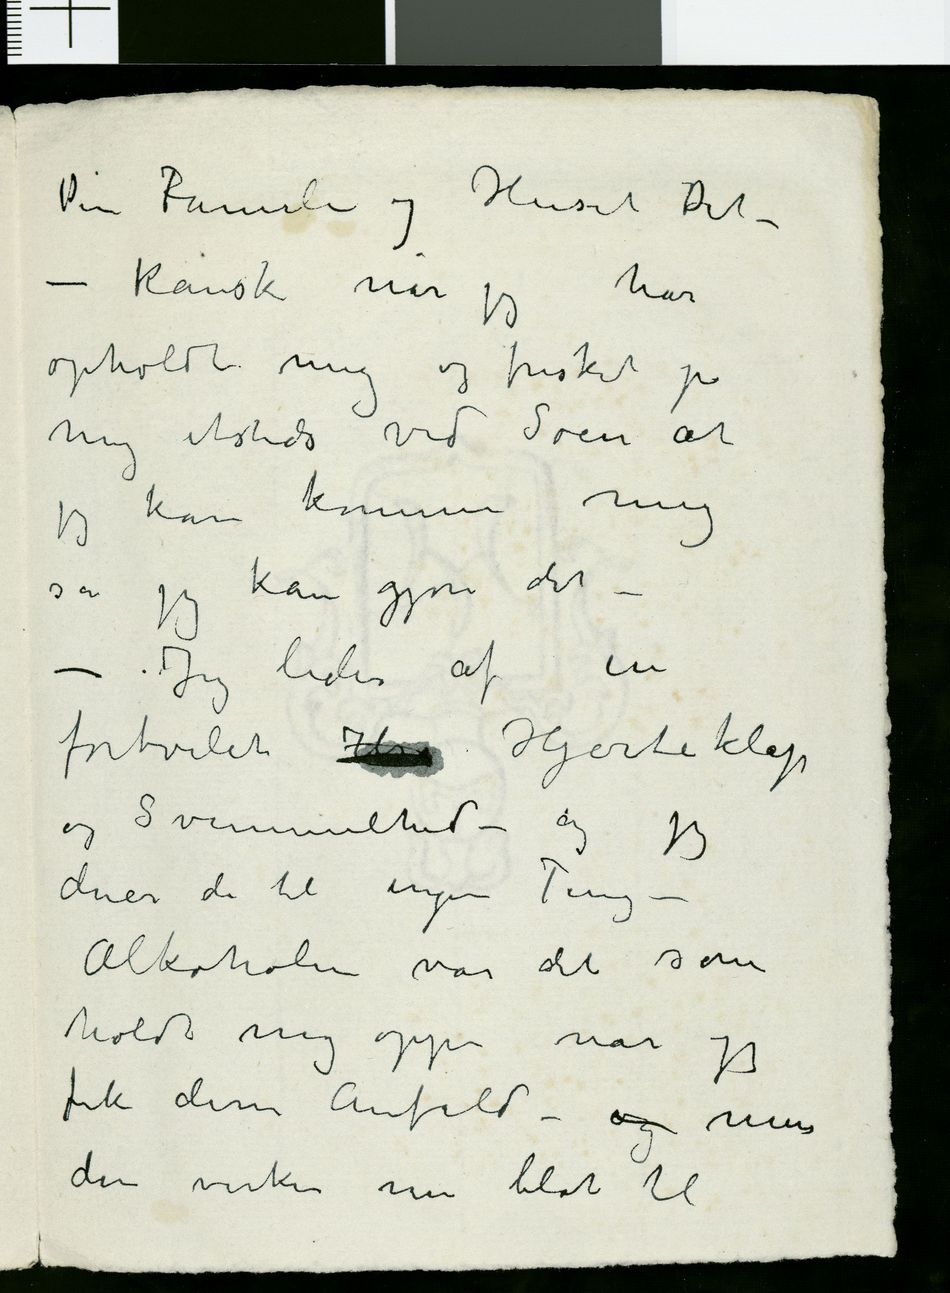 Din Familie og Huset Det –
– Kanske når jeg har
opholdt mig og frisket på
mig etsteds ved Søen at
jeg kan komme mig
så jeg kan gjøre det –
– Jeg lider af en
fortvilet Hjerteklap
og Svimmelhed – og jeg
duer da til ingen Ting –
Alkoholen var det som
holdt mig oppe når jeg
fik disse Anfald – og men
den virker nu blot til